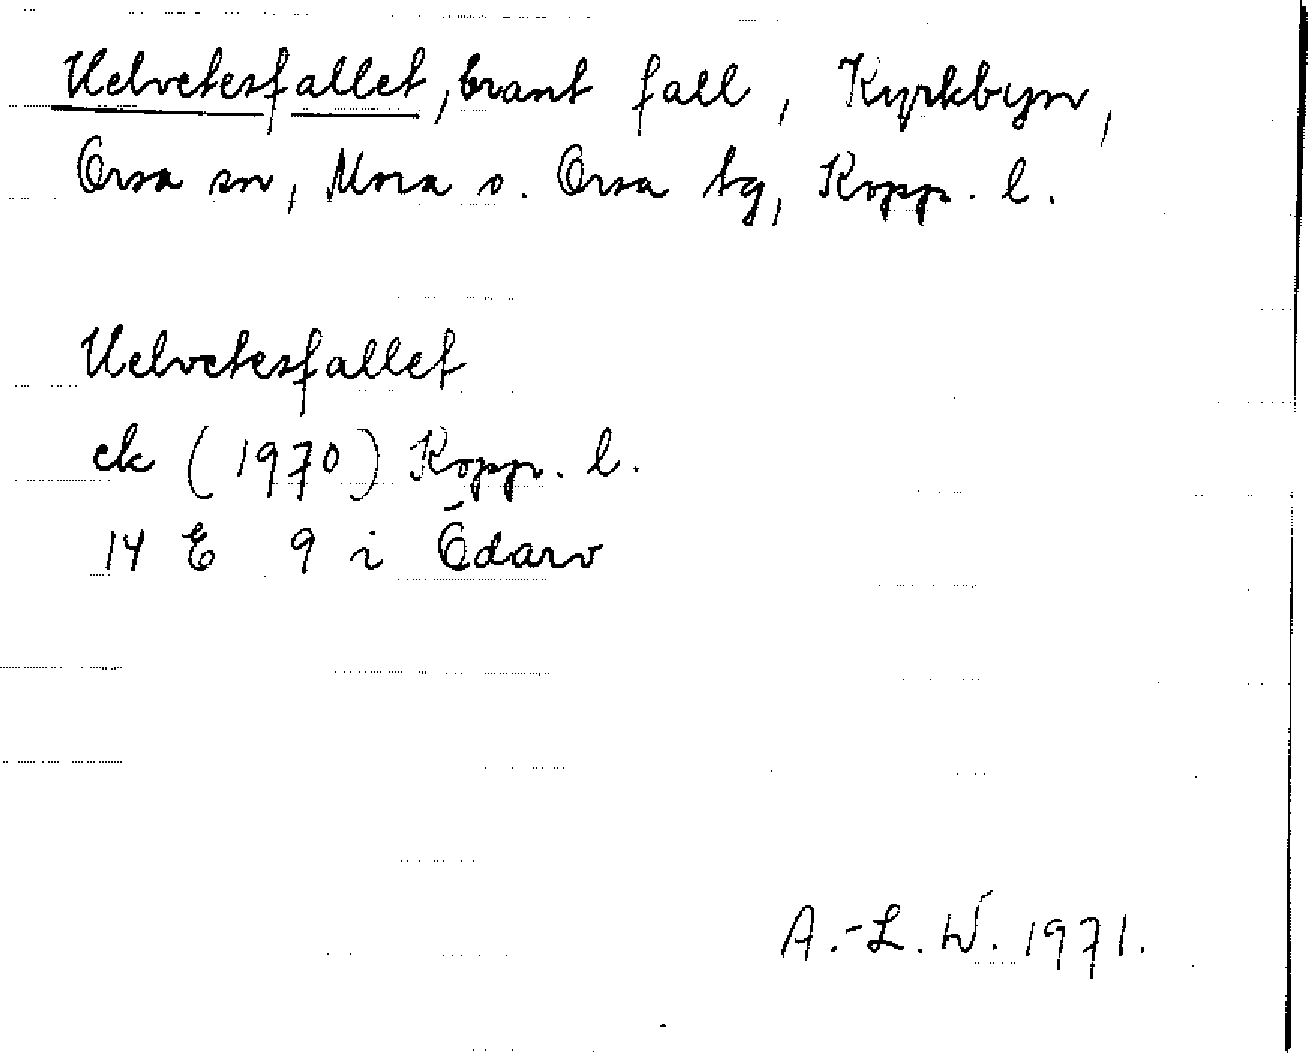 Helvetesfallet, brant fall, Kyrkbyn,
Orsa sn, Mora o. Orsa tg, Kopp. l.
Helvetesfallet
ek (1970) Kopp. l.
14 E 9 i Ödarv
A.-L. W. 1971.